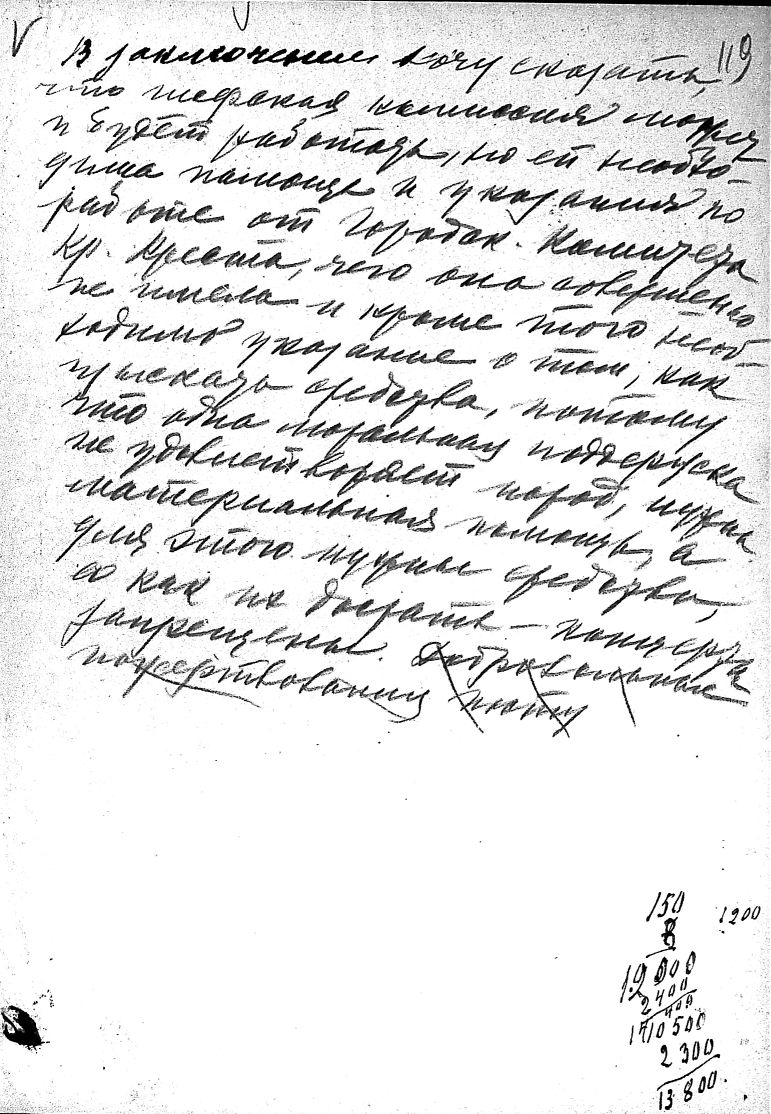 119
В заключении хочу сказать,
что шефская комиссия может
и будет работать, но ей необхо-
дима помощь и указания по
работе от Городск. Комитета
Кр. Креста, чего она совершенно
не имела и кроме того необ-
ходимо указание о том, как
изыскать средства, потому
что одна моральная поддержка
не удовлетворяет народ, нужна
материальная помощь, а
для этого нужны средства,
а как их достать — концерты
запрещены. Добровольные
пожертвования
150
8
1200
12000
2400
400
10500
2300
13800